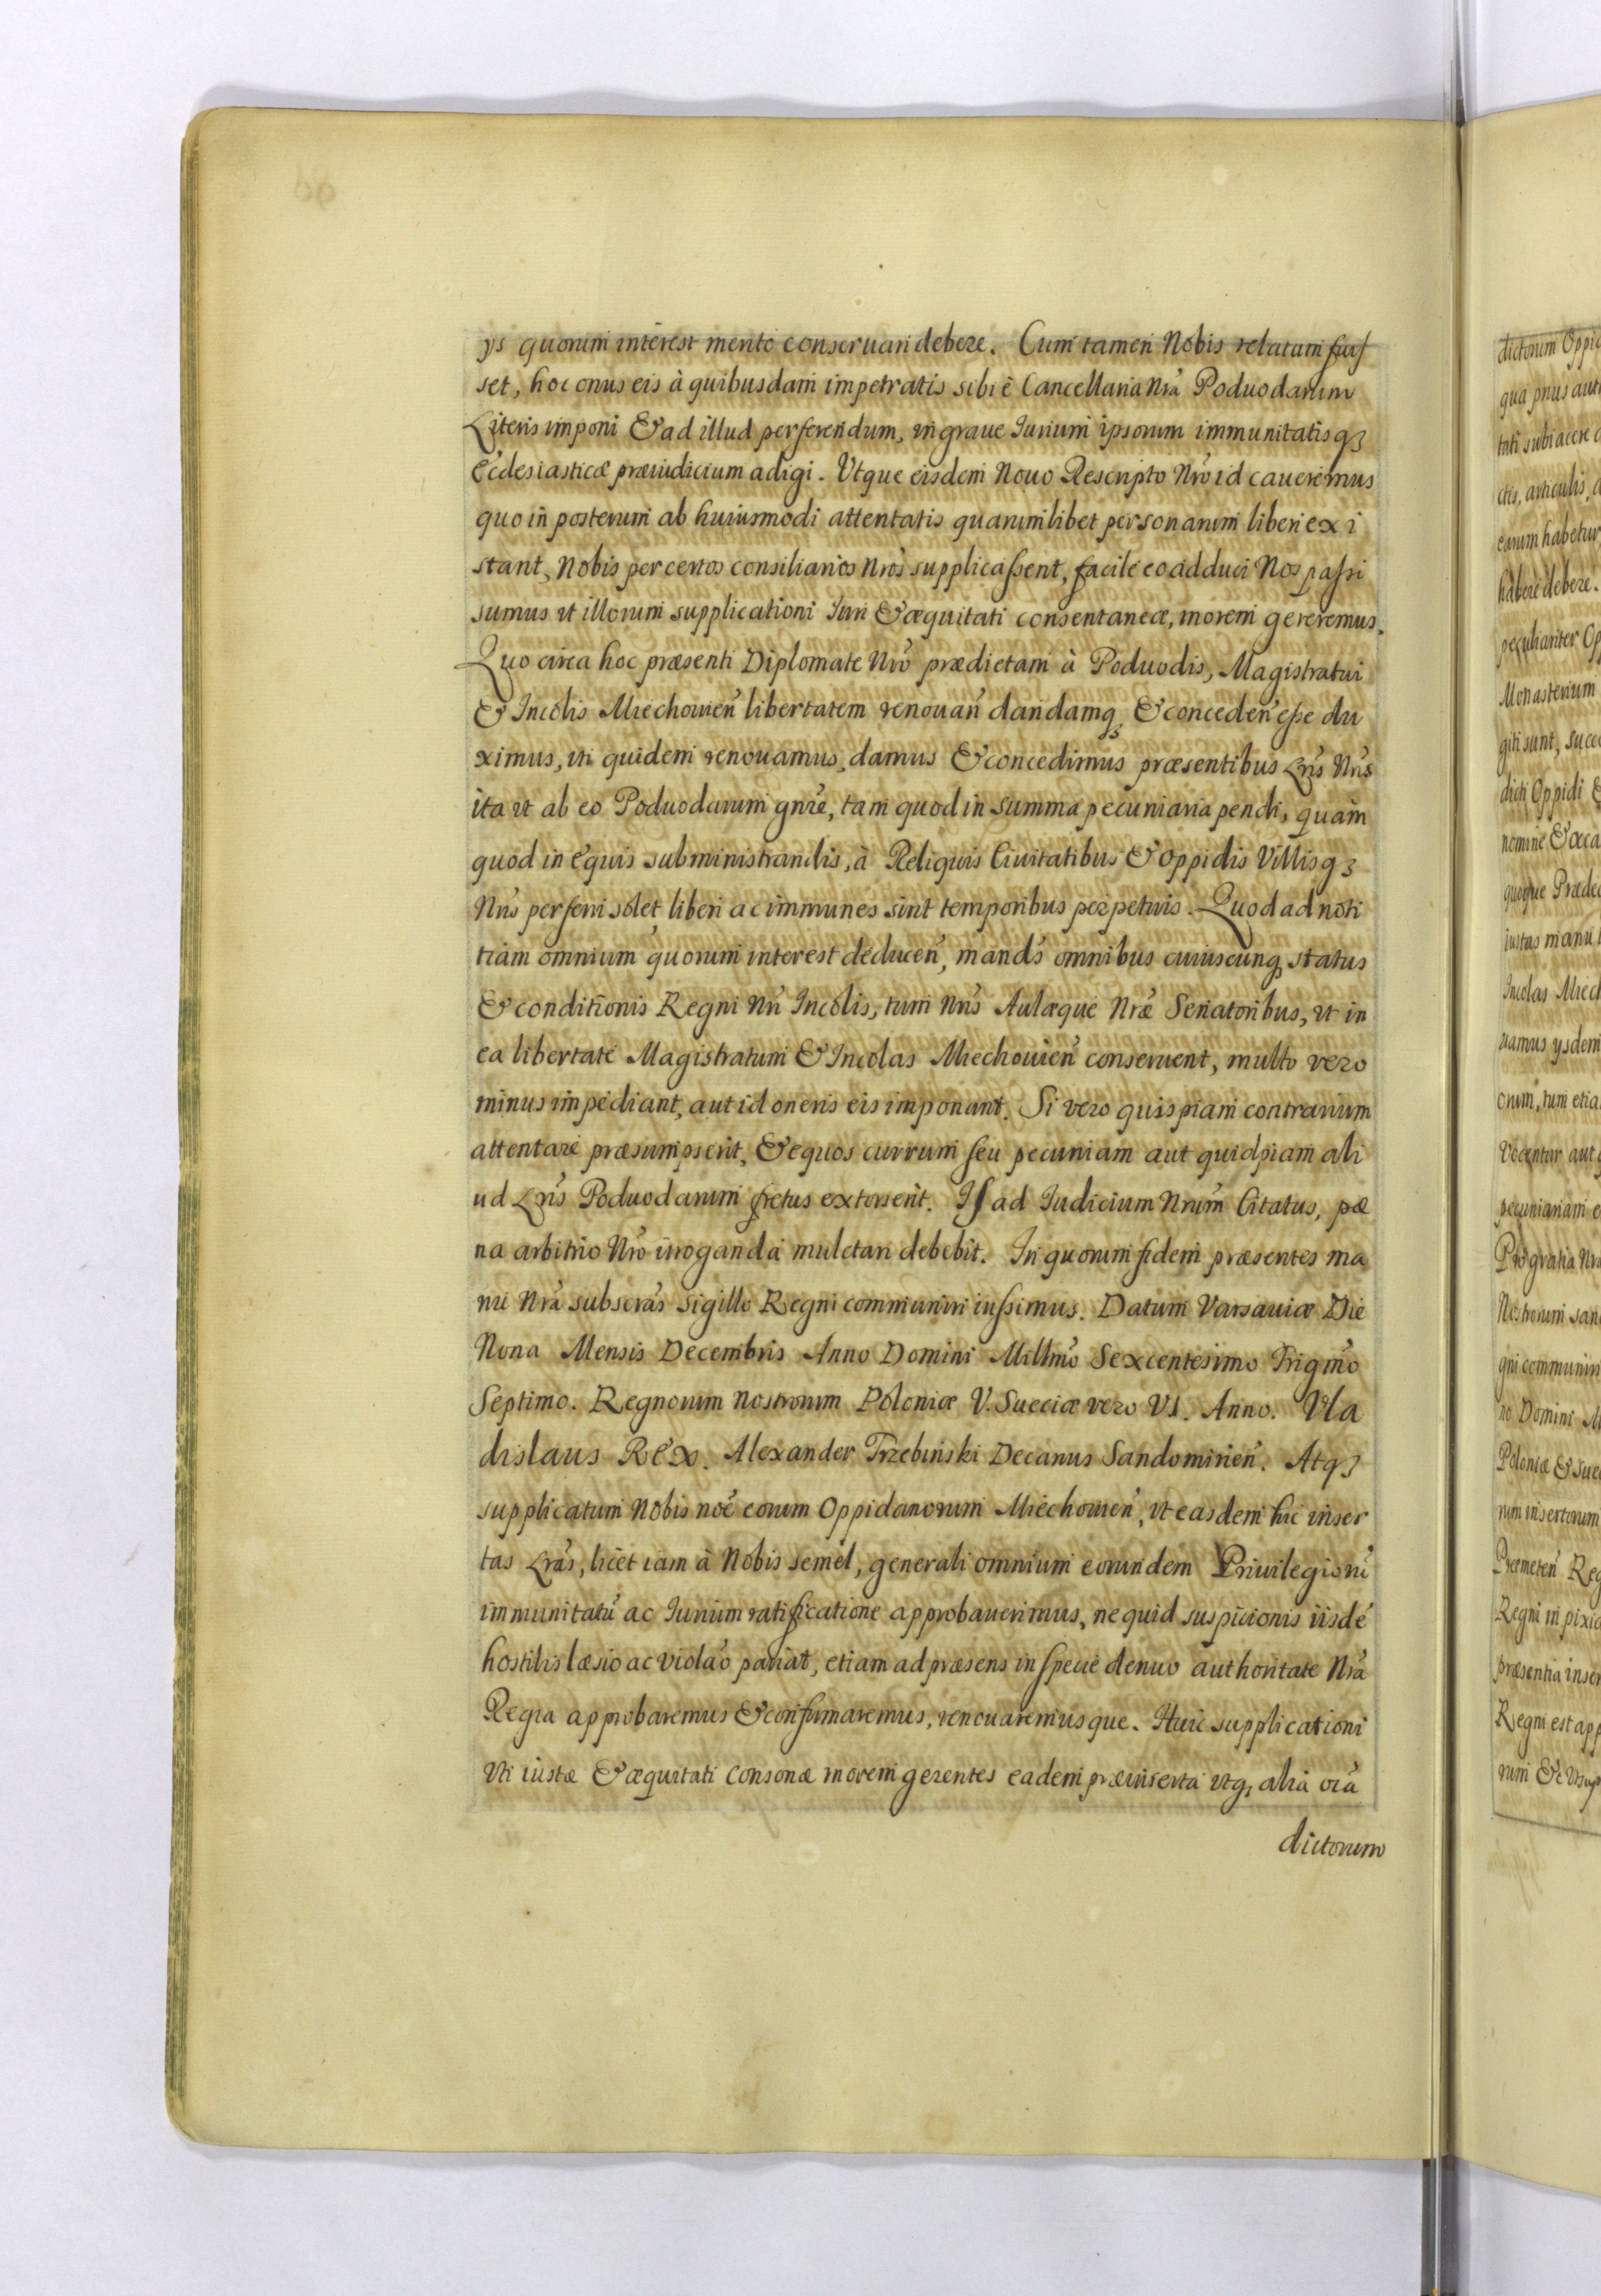 ys quorum interest merito conseruari debere. Cum tamen Nobis relatum fuis
set, hoc onus eis à quibusdam impetratis sibi è Cancellaria Nrā Poduodarum
Literis imponi & ad illud perferendum, in graue Iurium ipsorum immunitatisq3
Ecclesiasticæ præiudicium adigi. Vtque eisdem Nouo Rescripto Nrō id caueremus
quo in posterum ab huiusmodi attentatis quarumlibet personarum liberi exi
stant, Nobis per certos consiliarios Nrōs supplicassent, facile eo adduci Nos passi
sumus vt illorum supplicationi Iuri & æquitati consentaneæ, morem gereremus.
Quo circa hoc præsenti Diplomate Nrō prædictam à Poduodis, Magistratui
& Incolis Miechouien̄ libertatem renouan̄ dandamq3 & conceden̄ esse du
ximus, vti quidem renouamus, damus & concedimus præsentibus Lrīs Nrīs
ita vt ab eo Poduodarum gnrē, tam quod in summa pecuniaria pendi, quam
quod in equis subministrandis, à Reliquis Ciuitatibus & Oppidis Villisq3
Nrīs perferri solet liberi ac immunes sint temporibus perpetuis. Quod ad noti
tiam omnium quorum interest deducen̄, mandūs omnibus cuiuscunq3 status
& conditionis Regni Nrī Incolis, tum Nrīs Aulæque Nrǣ Senatoribus, vt in
ea libertate Magistratum & Incolas Miechouien̄ conseruent, multo vero
minus impediant, aut id oneris eis imponant. Si vero quispiam contrarium
attentare præsumpserit, & equos currum seu pecuniam aut quidpiam ali
ud Lrīs Poduodarum fretus extorserit. Is ad Iudicium Nrūm Citatus, pœ
na arbitrio Nrō irroganda mulctari debebit. In quorum fidem præsentes ma
nu Nrā subscrās sigillo Regni communiri iussimus. Datum Varsauiæ Die
Nona Mensis Decembris Anno Domini Millmō Sexcentesimo Trigmō
Septimo. Regnorum nostrorum Poloniæ V. Sueciæ vero VI. Anno. Vla
dislaus REX. Alexander Trzebiński Decanus Sandomirien̄. Atq3
supplicatum Nobis noē eorum Oppidanorum Miechouien̄, vt easdem hic inser
tas Lrās, licet iam à Nobis semel, generali omnium eorundem Priuilegiorū
immunitatū ac Iurium ratificatione approbauerimus, ne quid suspicionis iisdē
hostilis læsio ac violaō pariat, etiam ad præsens in specie denuo authoritate Nrā
Regia approbaremus & confirmaremus, renouaremusque. Huic supplicationi
Vti iustæ & æquitati consonæ morem gerentes eadem præinserta vtq3 alia oīa
dictorum